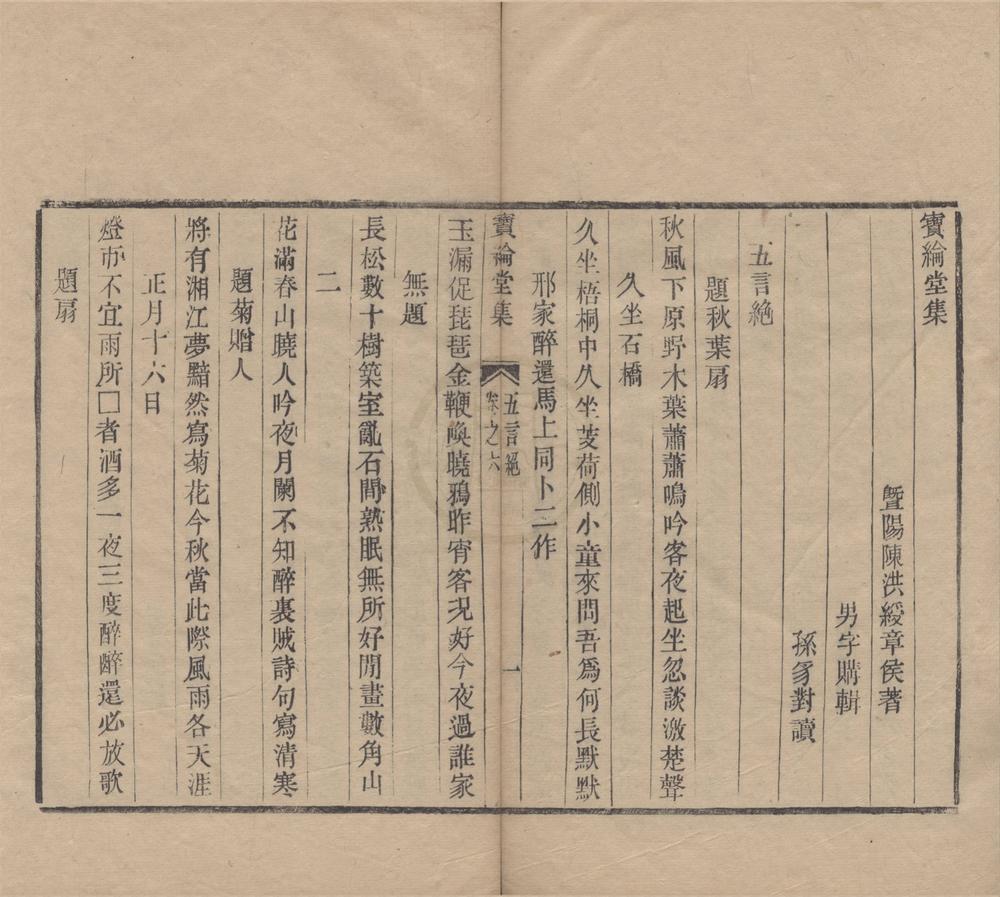 寶綸堂集
暨陽陳洪綬章侯著
男字購輯
孫豸對讀
五言絕
題秋葉扇
秋風下原野木葉蕭蕭鳴吟客夜起坐忽談激楚聲
久坐石橋
久坐梧桐中久坐芰荷側小童來問吾爲何長默默
邢家醉還馬上同卜二作
寶綸堂集
卷之六
五言絕
一
玉漏促琵琶金鞭喚曉鴉昨宵客況好今夜過誰家
無題
長松數十樹築室亂石間熟眠無所好閒畫數角山
二
花滿春山曉人吟夜月闌不知醉裏賊詩句寫清寒
題菊贈人
將有湘江夢黯然寫菊花今秋當此際風雨各天涯
正月十六日
燈市不宜雨所□者酒多一夜三度醉醉還必放歌
題扇